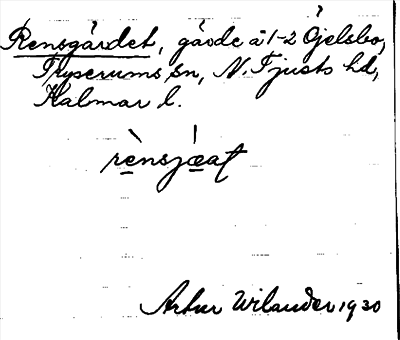 Rensgärdet, gärde å 1-2 Öjelsbo,
Tryserums sn, N. Tjusts hd,
Kalmar l.
rènsjæat
Artur Wilander 1930